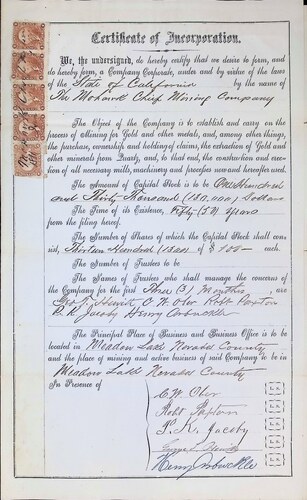 Certificate of Incorporation.
We, the undersigned, do hereby certify that we desire to form, and
do hereby form, a Company Corporate, under and by virtue of the laws
of the State of California by the name of
The Mohawk Chief Mining Company
The Object of the Company is to establish and carry on the
process of Mining for Gold and other metals, and, among other things,
the purchase, ownership and holding of claims, the extraction of Gold and
other minerals from Quartz, and, to that end, the construction and erec-
tion of all necessary mills, machinery and processes now and hereafter used.
The Amount of Capital Stock is to be One Hundred
and Thirty Thousand (130,000) Dollars
The Time of its Existence, Fifty (50) Years
from the filing hereof.
The Number of Shares of which the Capital Stock shall con-
sist, Thirteen Hundred (1300) of $100 each
The Number of Trustees to be
The Names of Trustees who shall manage the concerns of
the Company for the first Three (3) Months, are
C. W. Ober Robt
P. K. Jacoby Henry Arbuckle
The Principal Place of Business and Business Office is to be
located in Meadow Lake Nevada County
and the place of mining and active business of said Company to be in
Meadow Lake Nevada County
In Presence of
C. W. Ober
Robt
P. K. Jacoby
Henry Arbuckle